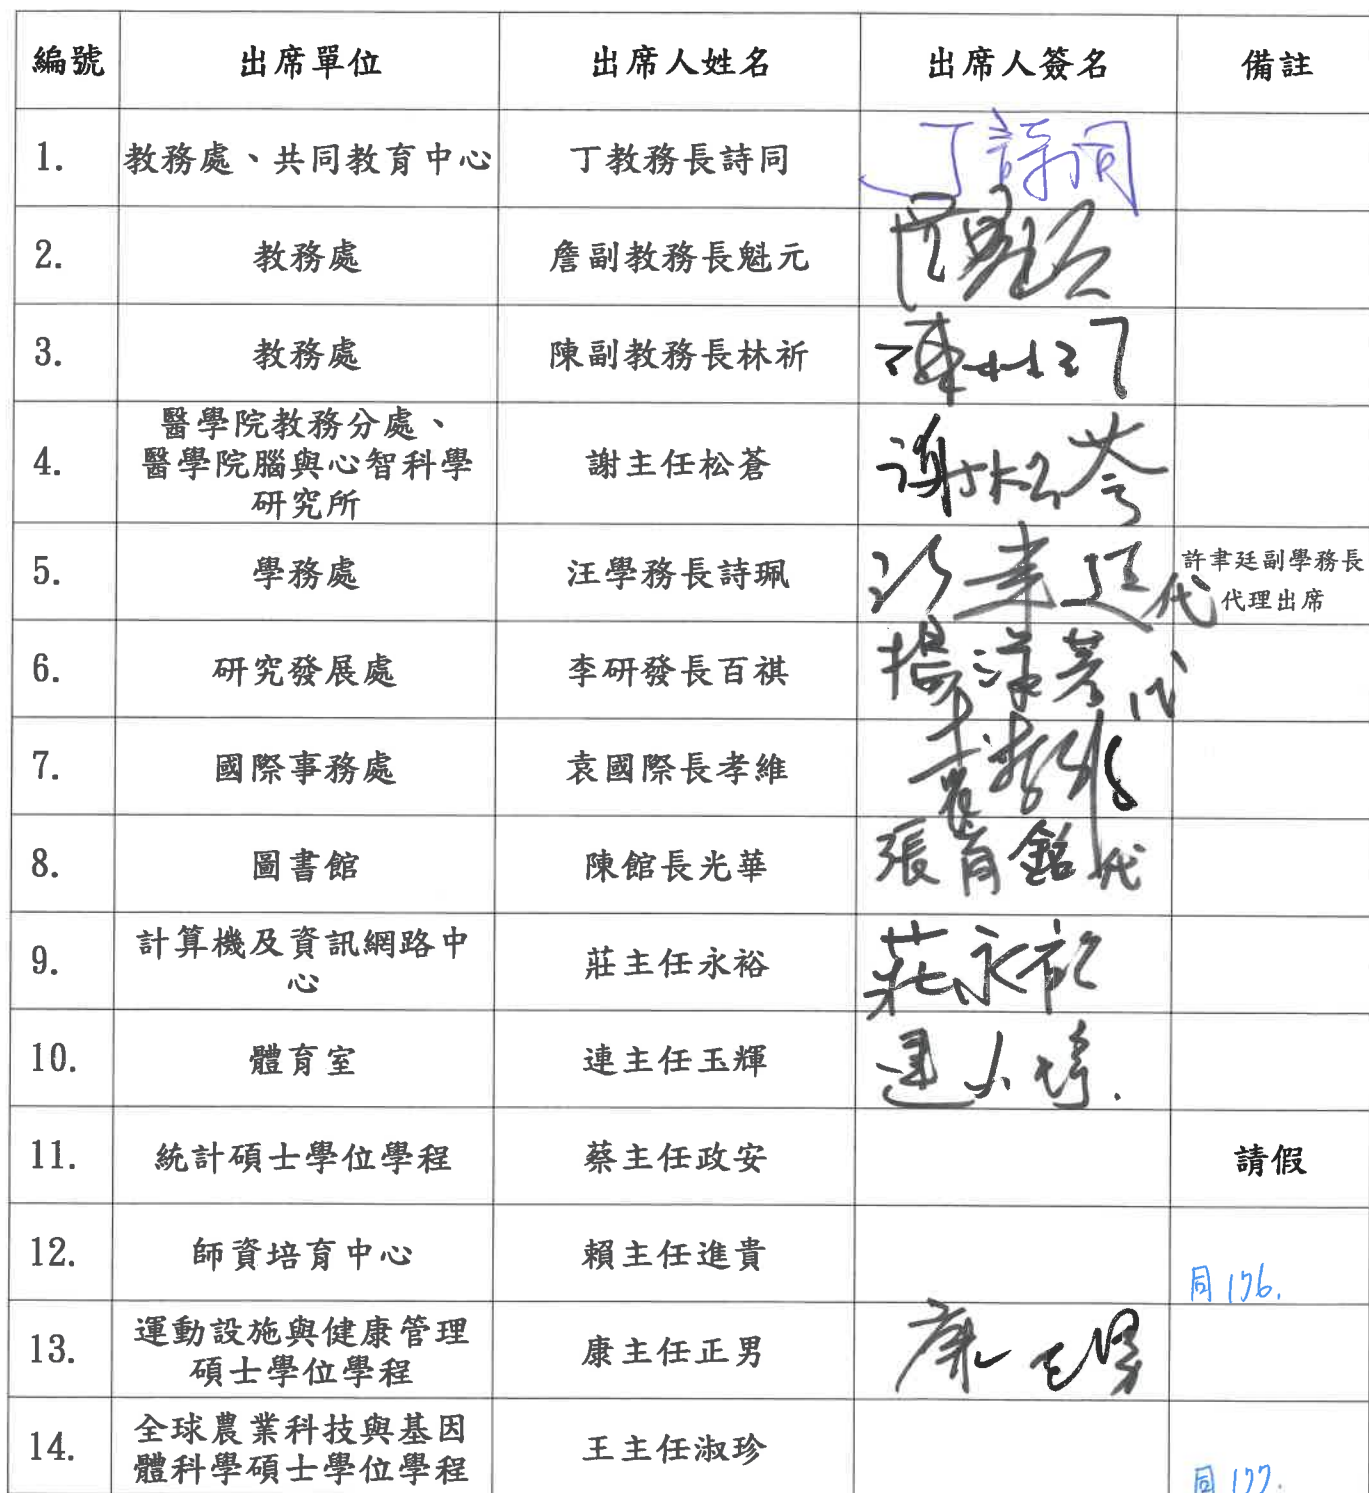 編號 出席單位 出席人姓名 出席人簽名 備註
1. 教務處、共同教育中心 丁教務長詩同 丁詩同
2. 教務處 詹副教務長魁元 詹魁元
3. 教務處 陳副教務長林祈 陳林祈
4. 醫學院教務分處、
醫學院腦與心智科學
研究所 謝主任松蒼 謝松蒼
5. 學務處 汪學務長詩珮 許聿廷代 許聿廷副學務長
代理出席
6. 研究發展處 李研發長百祺 代
7. 國際事務處 袁國際長孝維 袁孝維
8. 圖書館 陳館長光華 張育銘代
9. 計算機及資訊網路中
心 莊主任永裕 莊永裕
10. 體育室 連主任玉輝 連玉輝
11. 統計碩士學位學程 蔡主任政安 請假
12. 師資培育中心 賴主任進貴 同176.
13. 運動設施與健康管理
碩士學位學程 康主任正男 康正男
14. 全球農業科技與基因
體科學碩士學位學程 王主任淑珍 同177.